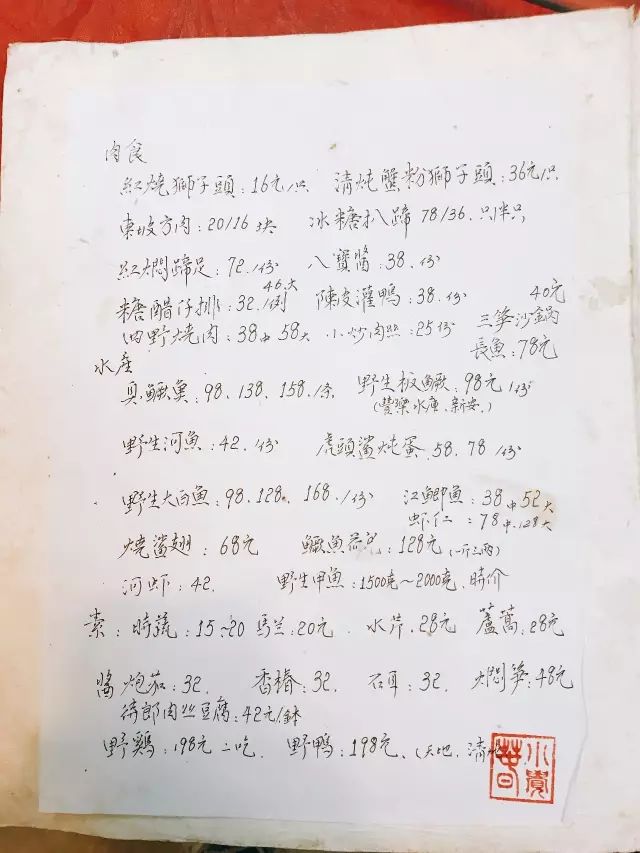 肉食
紅燒獅子頭:16元/只 清炖蟹粉獅子頭:36元/只
東坡方肉:20/16 块 冰糖扒蹄 78/36.只/半只
紅燜蹄足:72./份 八寶醬:38.份
糖醋仔排:32./例 46.大 陳皮灌鴨:38.份 40元
四野燒肉:38中 58大 小炒肉丝:25份 三笋沙鍋
長魚:78元
水產
臭鳜魚:98.138.158./条 野生板鳜:98元/份
(豐樂水庫.新安.)
野生河魚:42./份 虎頭鯊炖蛋.58.78/份
野生大白魚:98.128.168./份 江鯽魚:38中52大
虾仁:78中.128大
燒鯊翅:68元 鳜魚:128元(一斤三两)
河虾:42. 野生甲魚:1500克~2000克.時价
素:時蔬:15~20 馬兰:20元.水芹.28元 蘆蒿:28元
醬炮茄:32. 香椿:32. 石耳:32. 火燜笋:48元
待郎肉丝豆腐:42元/鉢
野鷄:198元 二吃. 野鴨:198元.(天地.清
小覺